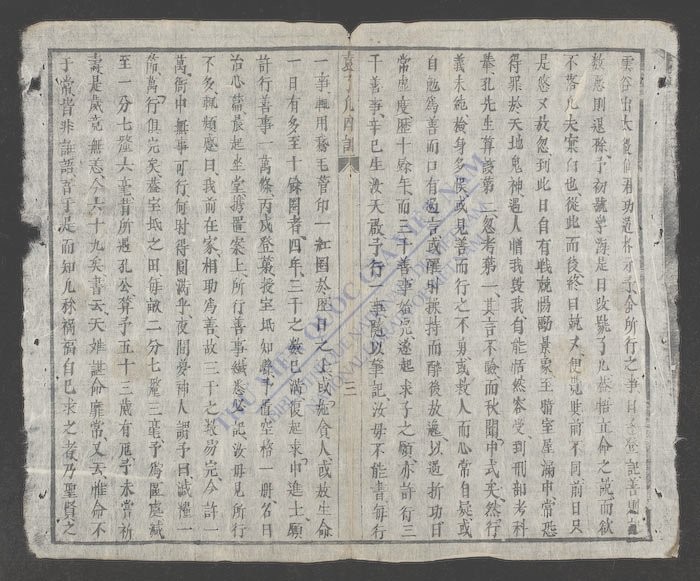 雲谷出太微仙君功過格示予令所行之事日日登記善則
數惡則退除予初號學海是日改號了凡蓋悟立命之說而欲
不落凡夫窠臼也從此而後終日兢兢便覺與前不同前日只
是悠々放忽到此日自有戰兢惕勵景象至暗室屋漏中常恐
得罪於天地鬼神遇人憎我毀我自能恬然容受到刑部考科
舉孔先生算該第三忽考第一其言不驗而秋闈中式矣然行
義未純檢身多悞或見善而行之不勇或救人而心常自疑或
自勉爲善而口有過言或醒時操持而醉後放逸以過折功日
常虛度歷十餘年而三千善事始完遂起求子之願亦許行三
千善事辛巳生汝天啟予行一事隨以筆記汝母不能書每行
袁了凡四訓
三
一事輒用鵞毛管印一紅圈於曆日之上或施食人或放生命
一日有多至十餘圈者四年三千之數已滿復起求中進士願
許行善事一萬條丙戌登第授寶坻知縣予置空格一册名曰
治心篇晨起坐堂攜置案上所行善事纖悉必記汝母見所行
不多輒頻蹙曰我前在家相助爲善故三千之數易完今許一
萬衙中無事可行何時得圓滿乎夜間夢神人謂予曰減糧一
節萬行俱完矣蓋寶坻之田每畝二分七釐三毫予爲區處減
至一分四釐六毫昔所遇孔公算予五十三歲有厄予未常祈
壽是歲竟無恙今六十九矣書云天難諶命靡常又天惟命不
于常皆非誑語吾于是而知凡称禍福自己求之者乃聖賢之
THƯ VIỆN QUỐC GIA VIỆT NAM